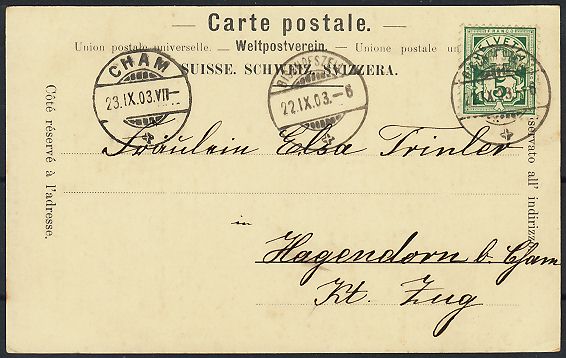 Carte postale.
Union postale universelle. — Weltpostverein. — Unione postale un
SUISSE. SCHWEIZ. SVIZZERA.
CHAM
23.IX.03.VII—
BISCHOFSZELL
22.IX.03.—6
HELVETIA
FRANCO
5
Côté réservé à l'adresse.
riservato all' indirizzo
Fräulein Elsa Trinler
in
Hagendorn b. Cham
Kt. Zug